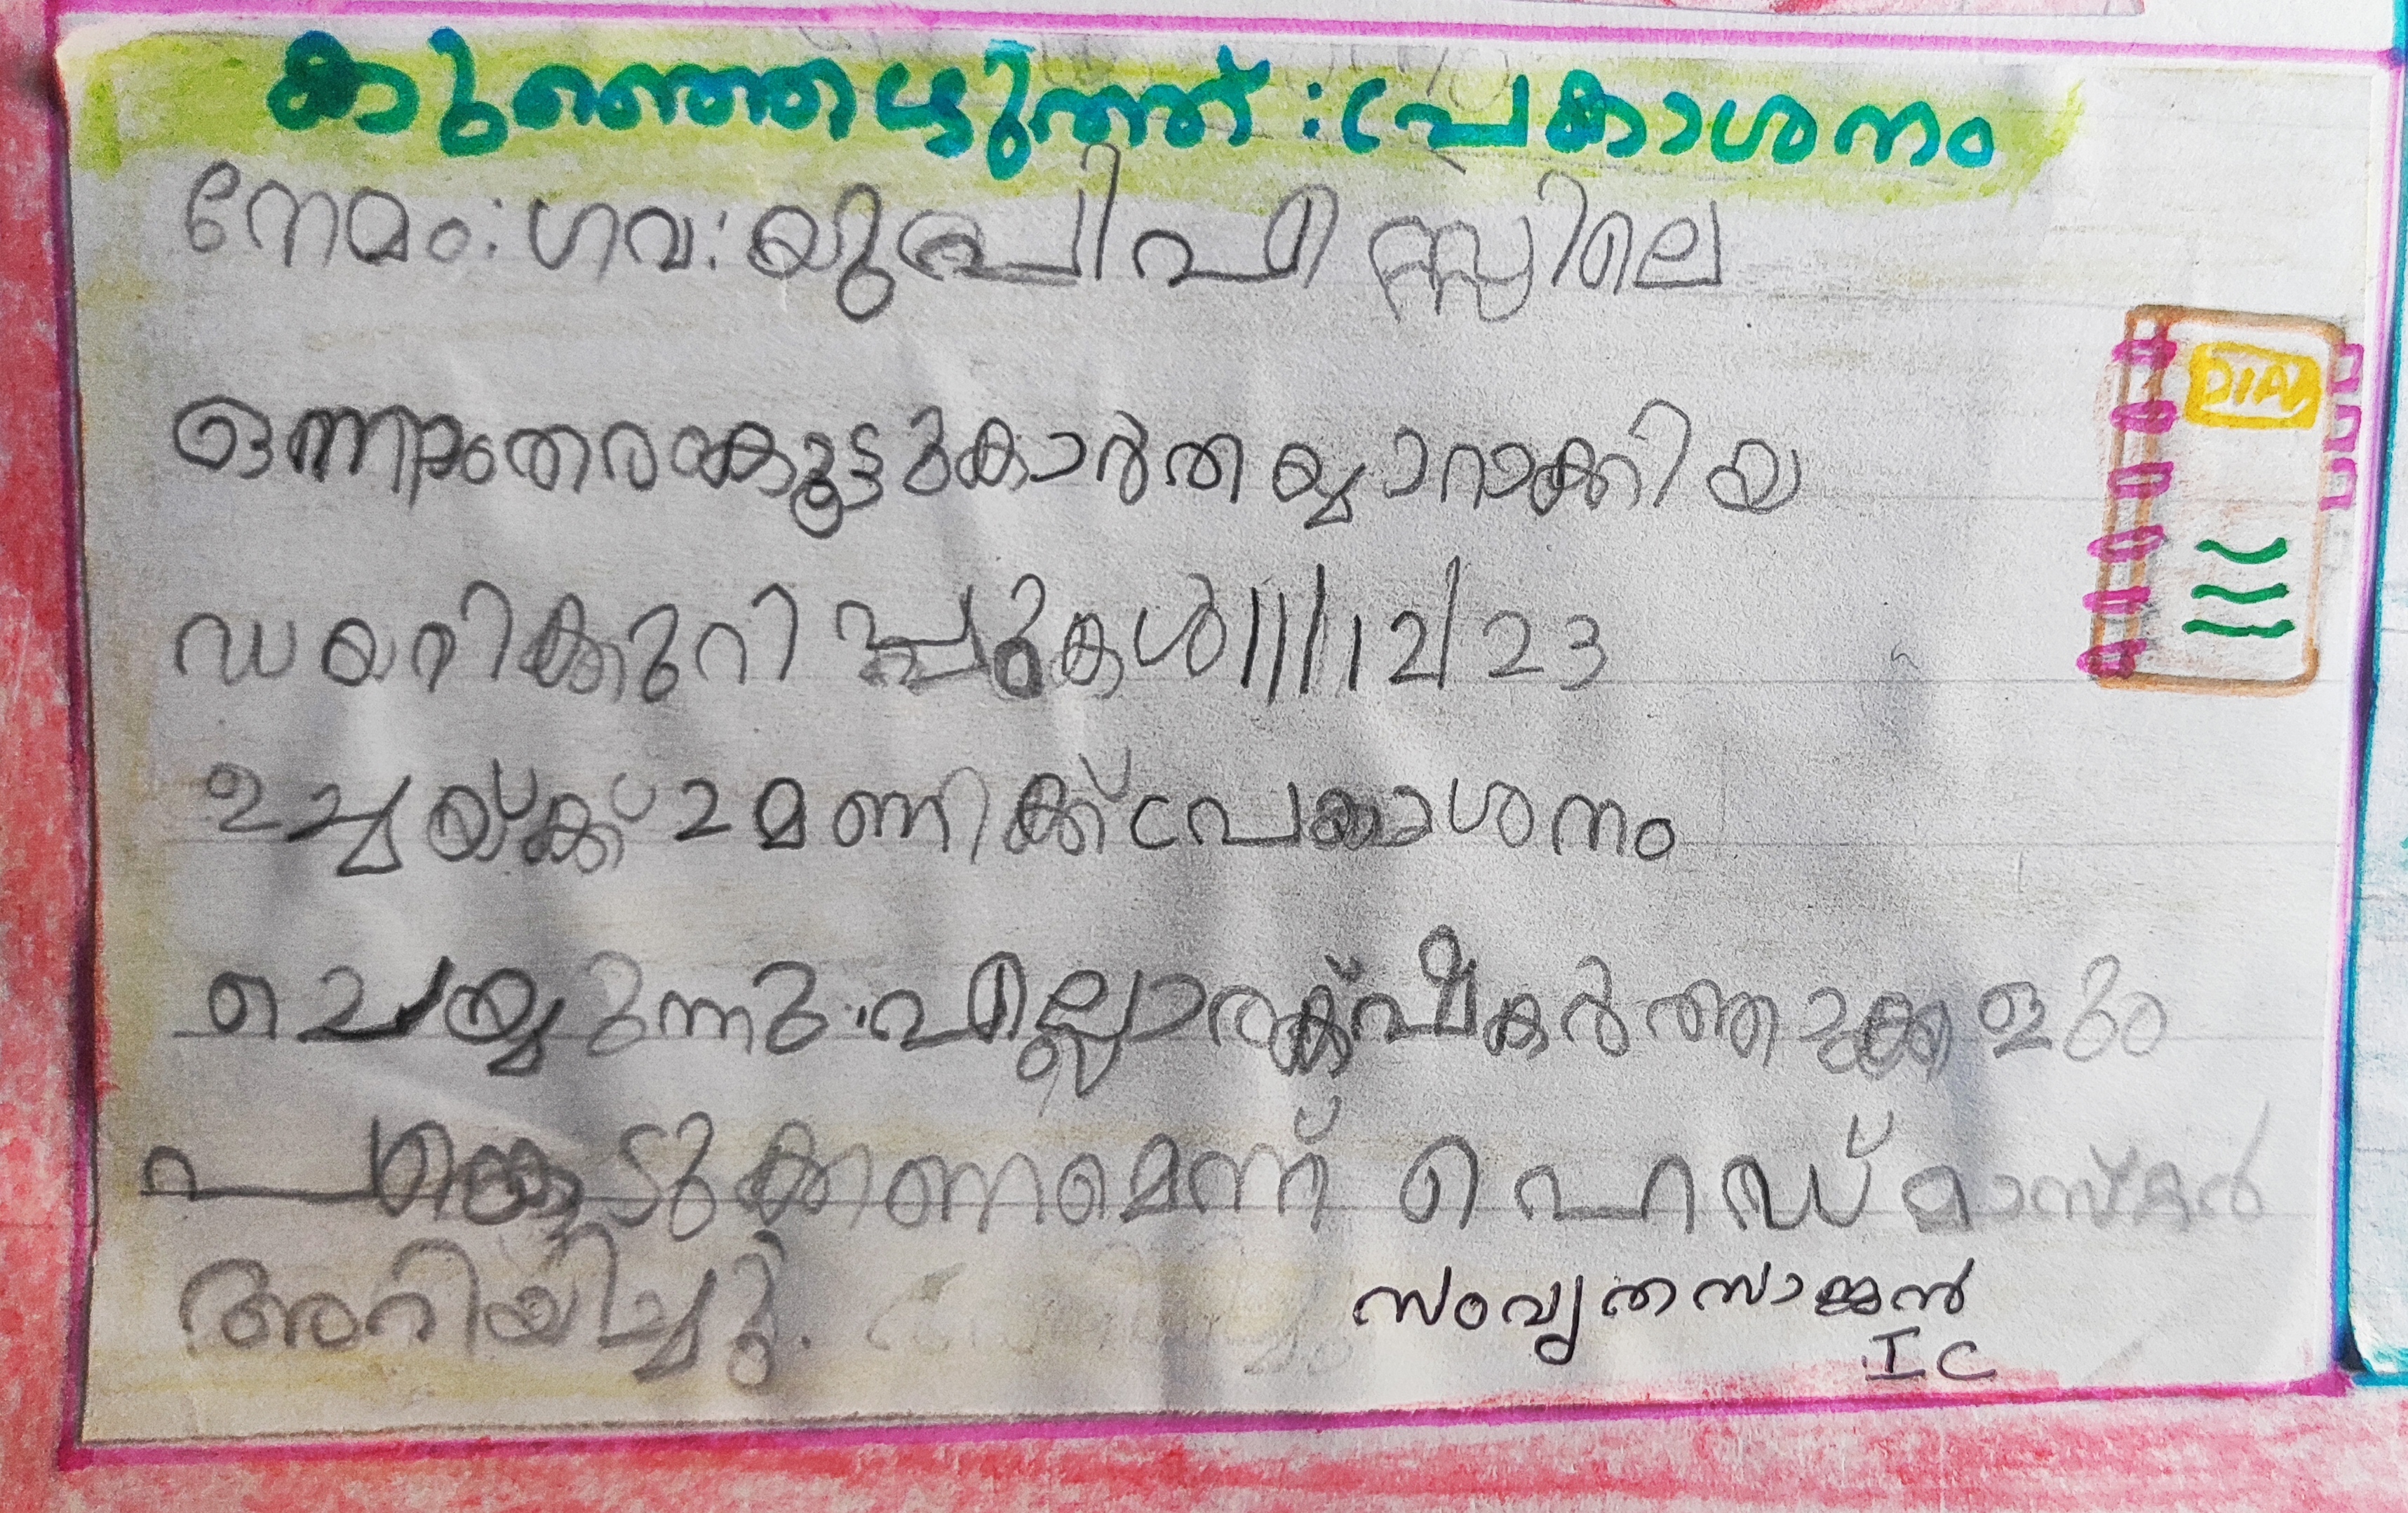 കുഞ്ഞെഴുത്ത് : പ്രകാശനം
നേമം : ഗവ : യു പി എസ്സിലെ
ഒന്നാംതരംകൂട്ടുകാർതയ്യാറാക്കിയ
ഡയറികുറിപ്പുകൾ 11/12/23
ഉച്ചയ്ക്ക് 2 മണിക്ക് പ്രകാശനം
ചെയ്യുന്നു. എല്ലാ രക്ഷകർത്താക്കളും
പങ്കെടുക്കണമെന്ന് ഹെഡ് മാസ്റ്റർ
അറിയിച്ചു.
സംവൃത സാജൻ
I C